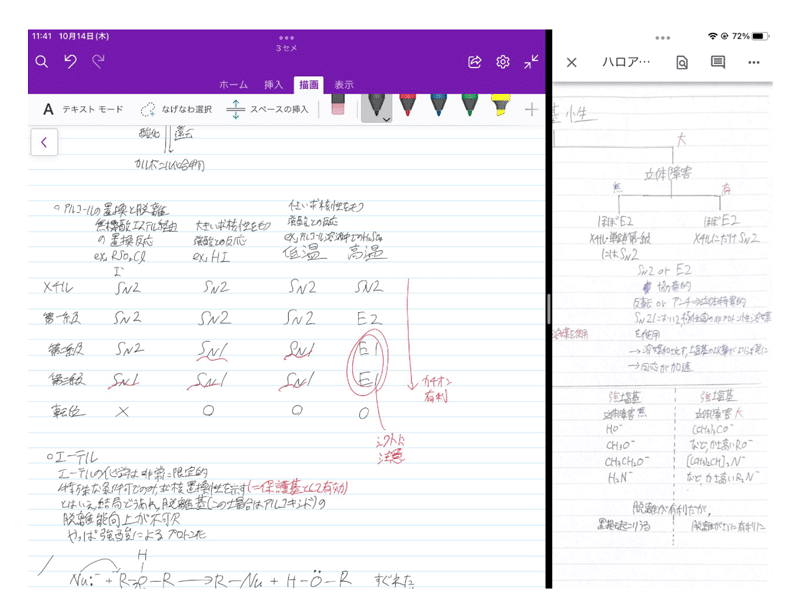 11:41 10月14日(木)
72%
3セメ
ホーム 挿入 描画 表示
テキスト モード なげなわ選択 スペースの挿入
ハロア…
カルボニル化合物
○アルコールの置換と脱離
無機酸エステル経由
の置換反応
ex, RSO2Cl
大きい求核性をもつ
強酸との反応
ex, HI
低い求核性をもつ
強酸との反応
低温 高温
メチル SN2 SN2 SN2 SN2
第一級 SN2 SN2 SN2 E2
第二級 SN2 SN1 SN1 E1
第三級 SN1 SN1 SN1 E1
転位 × ○ ○ ○
カチオン
有利
シフトに
注意
○エーテル
エーテルの化学は非常に限定的
特殊な条件下でのみ求核置換性を示す(=保護基として有効)
とはいえ、結局どうあれ、脱離基(この場合はアルコキシド)の
脱離能向上が不可欠
やっぱ強酸によるプロトン化
H
Nu:⁻ + R-O-R → R-Nu + H-Ö-R
基性
大
立体障害
無 有
ほぼE2 ほぼE2
メチル・第一級 メチルにだけSN2
にはSN2
SN2 or E2
協奏的
反転 or アンチの立体特異的
を使用
→反応が加速
強塩基 強塩基
立体障害 無 立体障害 大
HO⁻ (CH3)3CO⁻
CH3O⁻ など、かさ高いRO⁻
CH3CH2O⁻ [(CH3)2CH]2N⁻
H2N⁻ など、かさ高いR2N⁻
脱離が有利だが、
置換も起こりうる 脱離がさらに有利に